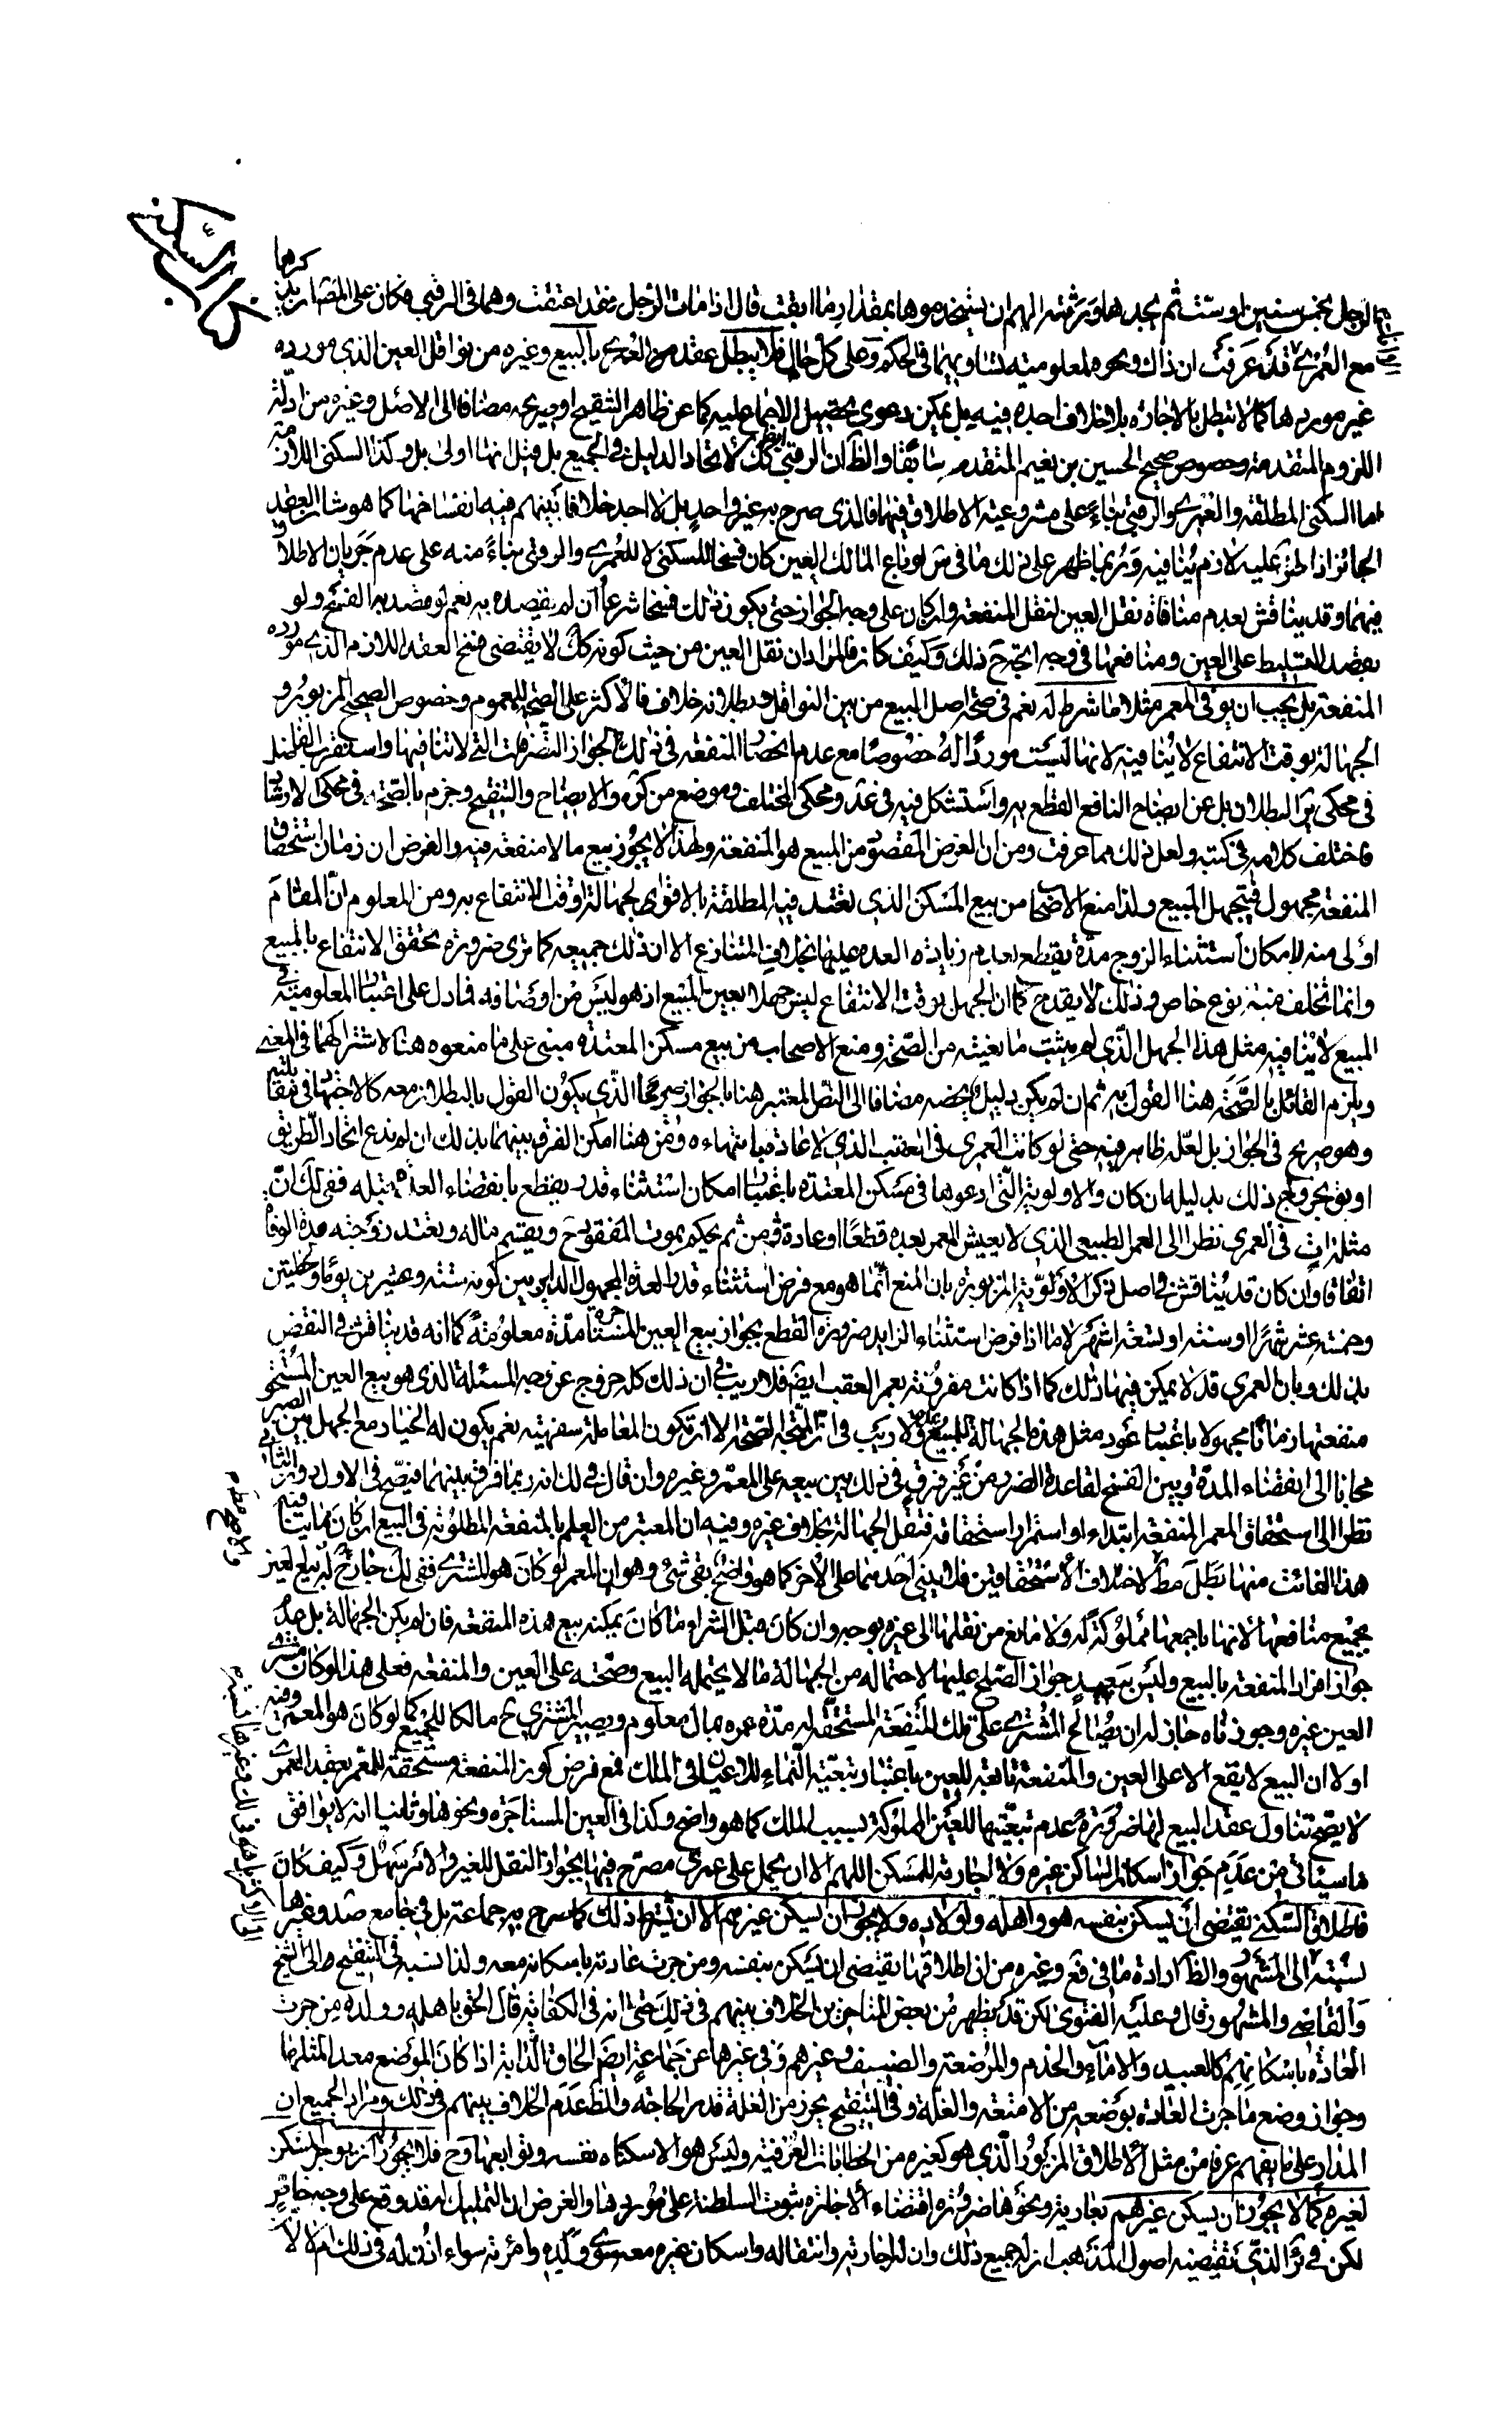 كتاب السكنى
الرجل بخمس سنين او ست ثم يجدها ورثته الهم ان يستخدموها بمقدار ما ابقت قال اذا مات الرجل فقد اعتقت وهما في الرقبى فكان على المض ذكرهما
مع العمرى قد عرفت ان ذلك ونحوه لمعلومية تساويهما في الحكم وعلى كل حال فلا يبطل عقد العمرى بالبيع وغيره من نواقل العين الذي مورده
غير موردها كما لا تبطل بالاجارة بلا خلاف اجده فيه بل يمكن دعوى تحصيل الاجماع عليه كما عن ظاهر التنقيح او صريحه مضافا الى الاصل وغيره من ادلة
اللزوم المتقدمة وخصوص صحيح الحسين بن نعيم المتقدم سابقا والظ ان الرقبى ايض كك لاتحاد الدليل في الجميع بل قيل انها اولى بل وكذا السكنى اللازمة
اما السكنى المطلقة والعمرى والرقبى بناء على مشروعية الاطلاق فيهما فالذي صرح به غير واحد بل لا اجد خلافا بينهم فيه انفساخها كما هو شان العقد
الجائز اذا طرء عليه لازم ينافيه وربما ظهر على ذلك ما في ض لو باع المالك العين كان فسخا للسكنى لا للعمرى والرقبى بناء منه على عدم جريان الاطلاق
فيهما وقد يناقش بعدم منافاة نقل العين لنقل المنفعة وان كان على وجه الجواز حتى يكون ذلك فسخا شرعا ان لم يقصده به نعم لو قصد به الفسخ ولو
بقصد التسليط على العين ومنافعها في وجه اتجه ح ذلك وكيف كان فالمراد ان نقل العين من حيث كونه كك لا يقتضي فسخ العقد اللازم الذي مورده
المنفعة بل يجب ان يوفى المعمر مثلا ما شرط له نعم في صحة اصل البيع من بين النواقل وبطلانه خلاف فالاكثر على الصحة للعموم وخصوص الصحيح المزبور و
الجهالة بوقت الانتفاع لا ينافيه لانها ليست موردا له خصوصا مع عدم انحصار المنفعة في ذلك لجواز التصرفات التي لا تنافيها واستقرب الفاضل
في محكي ير البطلان بل عن ايضاح النافع القطع به واستشكل فيه في عد ومحكي المختلف وموضع من كره والايضاح والتنقيح وجزم بالصحة في محكي الارشاد
فاختلف كلامه في كتبه ولعل ذلك مما عرفت ومن ان الغرض المقصود من المبيع هو المنفعة ولهذا لا يجوز بيع ما لا منفعة فيه والفرض ان زمان استحقاق
المنفعة مجهول فيتجهل المبيع ولذا منع الاصحاب من بيع المسكن الذي تعتد فيه المطلقة بالاقراء لجهالة وقت الانتفاع به ومن المعلوم ان المقام
اولى منه لامكان استثناء الزوج مدة يقطع بعدم زيادة العدة عليها بخلاف المتنازع الا ان ذلك جميعه كما ترى ضرورة تحقق الانتفاع بالمبيع
وانما تخلف منه نوع خاص وذلك لا يقدح كما ان الجهل بوقت الانتفاع ليس جهلا بعين المبيع اذ هو ليس من اوصافه فما دل على اعتبار المعلومية في
المبيع لا ينافيه مثل هذا الجهل الذي لم يثبت مانعيته من الصحة ومنع الاصحاب من بيع مسكن المعتدة مبني على ما منعوه هنا لاشتراكهما في المعنى
ويلزم القائل بالصحة هنا القول به ثم ان لم يكن دليل يخصه مضافا الى النص المعتبر هنا بالجواز صريحا الذي يكون القول بالبطلان معه كالاجتهاد في مقابلته
وهو صريح في الجواز بل لعله ظاهر فيه حتى لو كانت العمرى في العقب الذي لا عادة بانتهاءه ومن هنا امكن الفرق بينهما بذلك ان لم ندع اتحاد الطريق
او نق بخروج ذلك بدليله ان كان والاولوية التي ادعوها في مسكن المعتدة باعتبار امكان استثناء قدر يقطع بانقضاء العدة قبله ففي لك ان
مثله ات في العمرى نظرا الى العمر الطبيعي الذي لا يعيش المعمر بعده قطعا او عادة ومن ثم يحكم بموت المفقود ح ويقسم ماله وتعتد زوجته عدة الوفاة
اتفاقا وان كان قد يناقش في اصل ذكر الاولوية المزبورة بان المنع انما هو مع فرض استثناء قدر العدة المجهول الداير بين كونه ستة وعشرين يوما ولحظتين
وخمسة عشر شهرا او سنة او تسعة اشهر لا ما اذا فرض استثناء الزايد ضرورة القطع بجواز بيع العين المستاجرة مدة معلومة كما انه قد يناقش في النقض
بذلك وبان العمرى قد لا يمكن فيها ذلك كما اذا كانت مقرونة بعمر العقب ايض فلا ريب في ان ذلك كله خروج عن وجه المسئلة الذي هو بيع العين المستحق
منفعتها زمانا مجهولا باعتبار عود مثل هذه الجهالة للمبيع وعدمه ولا ريب في ان المتجه الصحة الا ان تكون المعاملة سفهية نعم يكون له الخيار مع الجهل بين الصبر
مجانا الى انقضاء المدة وبين الفسخ لقاعدة الضرر من غير فرق في ذلك بين بيعه على المعمر وغيره وان قال في لك انه ربما فرق بينهما فيصح في الاول دون الثاني
نظرا الى استحقاق المعمر المنفعة ابتداء او استمرار استحقاقه فتقل الجهالة بخلاف غيره وفيه ان المعتبر من العلم بالمنفعة المطلوبة في البيع ان كان مما ينافيه
هذا الفائت منها بطل مط لاختلاف الاستحقاقين فلا يبنى احدهما على الاخر كما هو واضح بقى شئ وهو ان المعمر لو كان هو المشتري ففي لك جاز له بيع العين
بجميع منافعها لانها باجمعها مملوكة له ولا مانع من نقلها الى غيره بوجه وان كان قبل الشراء ما كان يمكنه بيع هذه المنفعة فان لم يكن للجهالة بل لعدم
جواز افراد المنفعة بالبيع وليس ببعيد جواز الصلح عليها لاحتماله من الجهالة ما لا يحتمله البيع وصحته على العين والمنفعة فعلى هذا لو كان مشتري
العين غيره وجوزناه جاز له ان يصالح المشتري على تلك المنفعة المستحقة له مدة عمره بمال معلوم ويصير المشتري ح مالكا للجميع كما لو كان هو المعمر وفيه
اولا ان البيع لا يقع الا على العين والمنفعة تابعة للعين باعتبار تبعية النماء للاعيان في الملك فمع فرض كون المنفعة مستحقة للمعمر بعقد العمرى
لا يصح تناول عقد البيع لها ضرورة عدم تبعيتها للعين المملوكة بسبب الملك كما هو واضح وكذا في العين المستاجرة ونحوها وثانيا انه لا يوافق
ما سيأتي من عدم جواز اسكان الساكن غيره ولا اجارته للمسكن اللهم الا ان يحمل على عمرى مصرح فيها بجواز النقل للغير والامر سهل وكيف كان
فاطلاق السكنى يقتضي ان يسكن بنفسه هو واهله واولاده ولا يجوز ان يسكن غيرهم الا ان يشترط ذلك كما صرح به جماعة بل في جامع صد وغيرها
نسبته الى المشهور والظ ارادة ما في فع وغيره من ان اطلاقها يقتضي ان يسكن بنفسه ومن جرت عادته باسكانه معه ولذا نسبه في التنقيح الى الشيخ
والقاضي والمشهور قال وعليه الفتوى لكن قد يظهر من بعض المتاخرين الخلاف بينهم في ذلك حتى انه في الكفاية قال الحقوا باهله وولده من جرت
العادة باسكانهم كالعبيد والاماء والخدم والمرضعة والضيف وغيرهم وفي غيرها عن جماعة ايضا الحاق الدابة اذا كان الموضع معدا لمثلها
وجواز وضع ما جرت العادة بوضعه من الامتعة والغلة وفي التنقيح يحرز من الغلة قدر الحاجة والظ عدم الخلاف بينهم في ذلك ومراد الجميع ان
المدار على ما يفهم عرفا من مثل الاطلاق المزبور الذي هو كغيره من الخطابات العرفية وليس هو الا سكناه نفسه وتوابعها وح فلا يجوز ان يوجر المسكن
لغيره كما لا يجوز ان يسكن غيرهم بعارية ونحوها ضرورة اقتضاء الاجارة ثبوت السلطنة على موردها والغرض ان التمليك له قد وقع على وجه خاص
لكن في ئر الذي تقتضيه اصول المذهب ان له جميع ذلك وان له اجارته وانتقاله واسكان غيره معه سوى ولده وامرئته سواء اذن له في ذلك ام لا لا